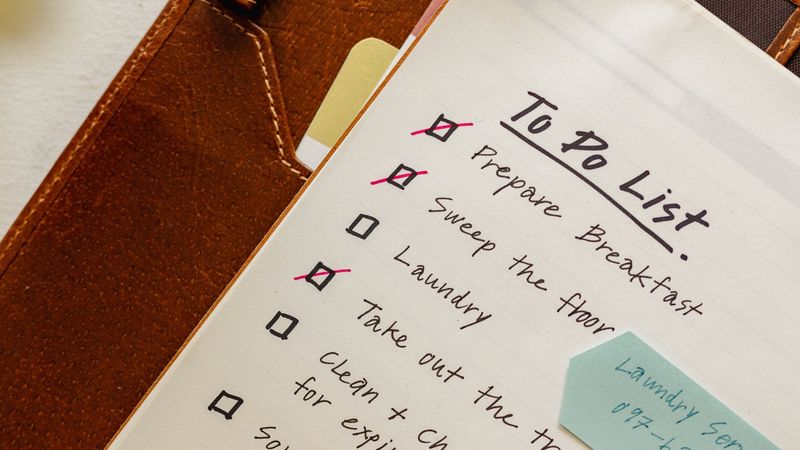 To Do List.
Prepare Breakfast
Sweep the floor
Laundry
Take out the
Clean +
for
Laundry
097-